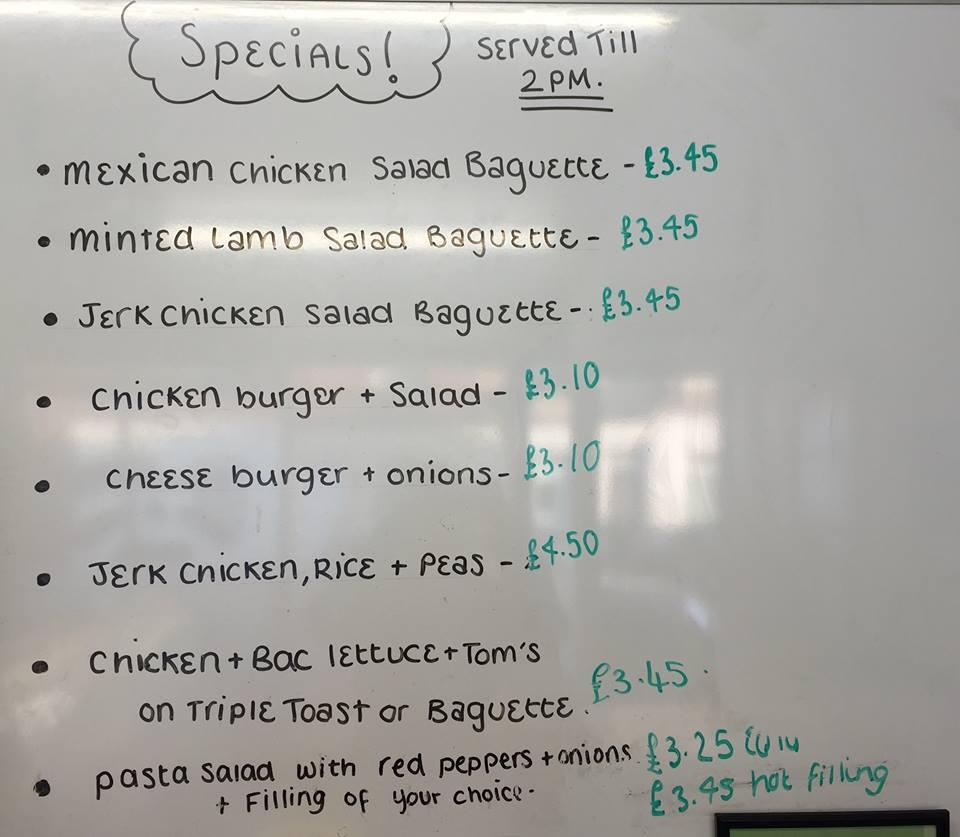 SPECIALS! SERVED TILL
2 PM.
• MEXICAN CHICKEN SALAD BAGUETTE - £3.45
• MINTED LAMB SALAD BAGUETTE - £3.45
• JERK CHICKEN SALAD BAGUETTE - £3.45
• CHICKEN burger + SALAD - £3.10
• CHEESE burger + onions - £3.10
• JERK CHICKEN, RICE + PEAS - £4.50
• CHICKEN + BAC LETTUCE + TOM'S
on TRIPLE TOAST or BAGUETTE. £3.45.
• pasta salad with red peppers + onions £3.25
+ Filling of your choice. £3.45 hot filling